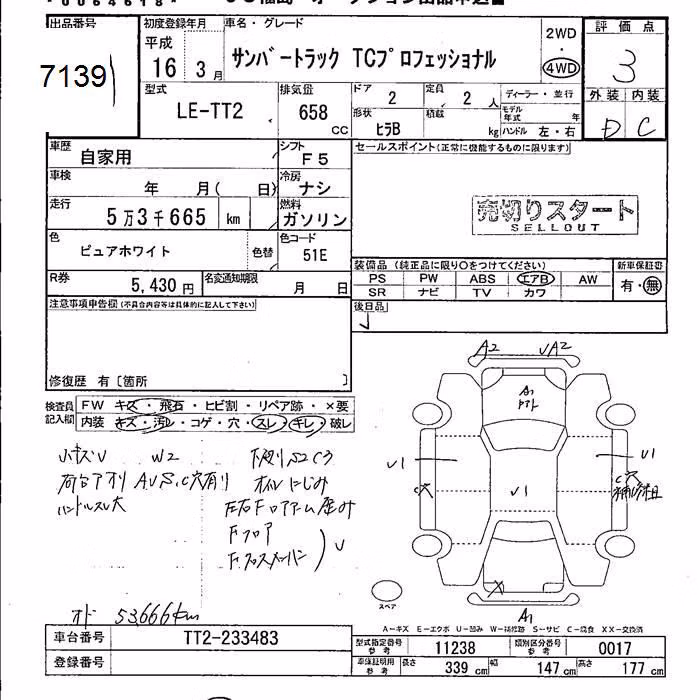 出品番号
7139
初度登録年月
平成
16 3月
車名・グレード
サンバートラック TCプロフェッショナル
2WD
・
4WD
評価点
3
外装 内装
D C
型式
LE-TT2
排気量
658
CC
ドア
2
定員
2 人
ディーラー・並行
形状
ヒラB
積載
kg
モデル年式 年
ハンドル 左・右
車歴
自家用
シフト
F5
セールスポイント(正常に機能するものに限ります)
車検
年 月( 日)
冷房
ナシ
走行
5万3千665 km
燃料
ガソリン
売切りスタート
SELLOUT
色
ピュアホワイト
色替
色コード
51E
装備品 (純正品に限り○をつけてください)
新車保証書
PS PW ABS エアB AW
有・無
SR ナビ TV カワ
R券
5,430円
名変通知期限
月 日
後日品
注意事項申告欄(不具合内容等は具体的に記入して下さい)
修復歴 有〔箇所 〕
検査員記入欄
FW キズ・飛石・ヒビ割・リペア跡・×要
内装 キズ・汚レ・コゲ・穴・スレ・キレ・破レ
小キズV W2
下廻りS2C3
荷台アオリ A.V.S.C穴有り
オイルにじみ
ハンドルスレ大
左右Fロアアーム歪み
Fフロア
Fクロスメンバー
V
オド 53,666km
A2
VA2
A1
V1
V1
V1
C穴
C穴
補修粗
A1
スペア
A-キズ E-エクボ U-凹み W-補修跡 S-サビ C-腐食 XX-交換済
車台番号
TT2-233483
型式指定番号
参考
11238
類別区分番号
参考
0017
登録番号
車庫証明用
参考
長さ 339 cm 幅 147 cm 高さ 177 cm